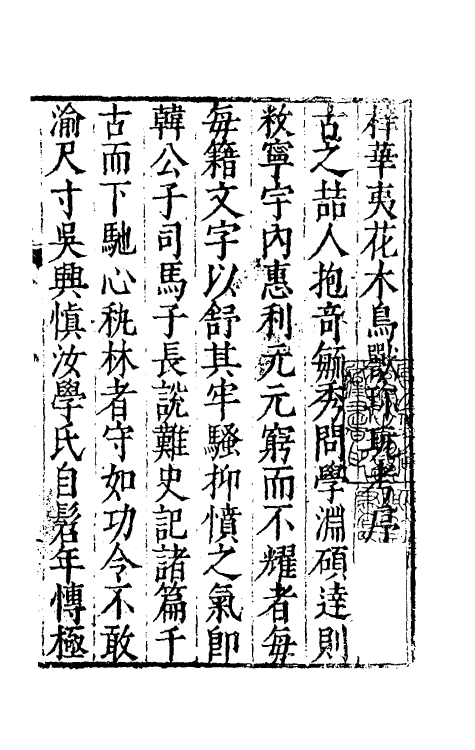 梓華夷花木鳥獸珍玩考序
古之喆人抱奇毓秀問學淵碩逹則
敉寜宇內惠利元元窮而不耀者毎
毎籍文字以舒其牢騷抑憤之氣卽
韓公子司馬子長說難史記諸篇千
古而下馳心秇林者守如功令不敢
渝尺寸吳興愼汝學氏自髫年慱極